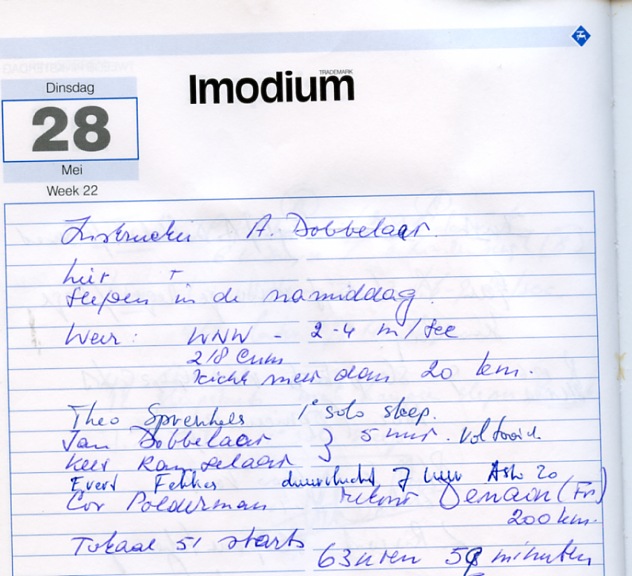 Imodium
TRADEMARK
Dinsdag
28
Mei
Week 22
Instructie A. Dobbelaar.
Lier +
Slepen in de namiddag.
Weer: WNW - 2-4 m/sec
2/8 Cum
Zicht meer dan 20 km.
Theo Sprenkels 1e solo sleep.
Jan Dobbelaar
Kees Ranselaar } 5 uur. voltooid.
Evert Fekkes duurvlucht 7 uur Ask 20
Cor Polderman retour Denain (Fr)
200 km.
Totaal 51 starts
63 uren 58 minuten